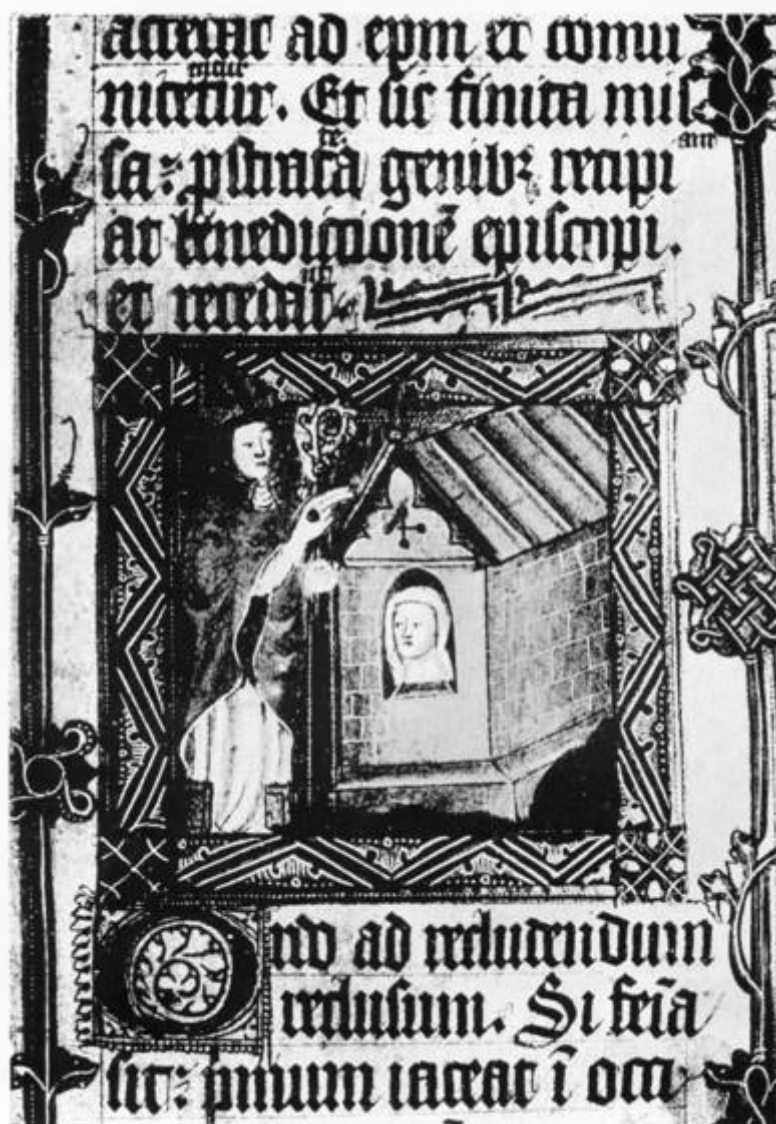 accedat ad epm et comu
nicetur. Et sic finita mis
sa: pstrata genibꝫ recipi
at benedictionē episcopi.
et recedat
Ordo ad recludendum
reclusum. Si feīa
sit: pmum iaceat ī occi